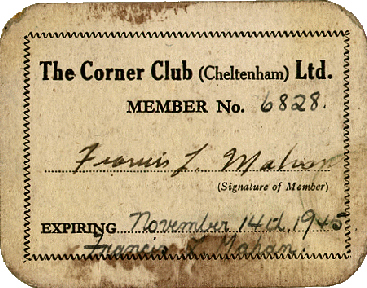 The Corner Club (Cheltenham) Ltd.
MEMBER No. 6828.
Francis L. Mahan
(Signature of Member)
EXPIRING November 14th, 1945
Francis L. Mahan.